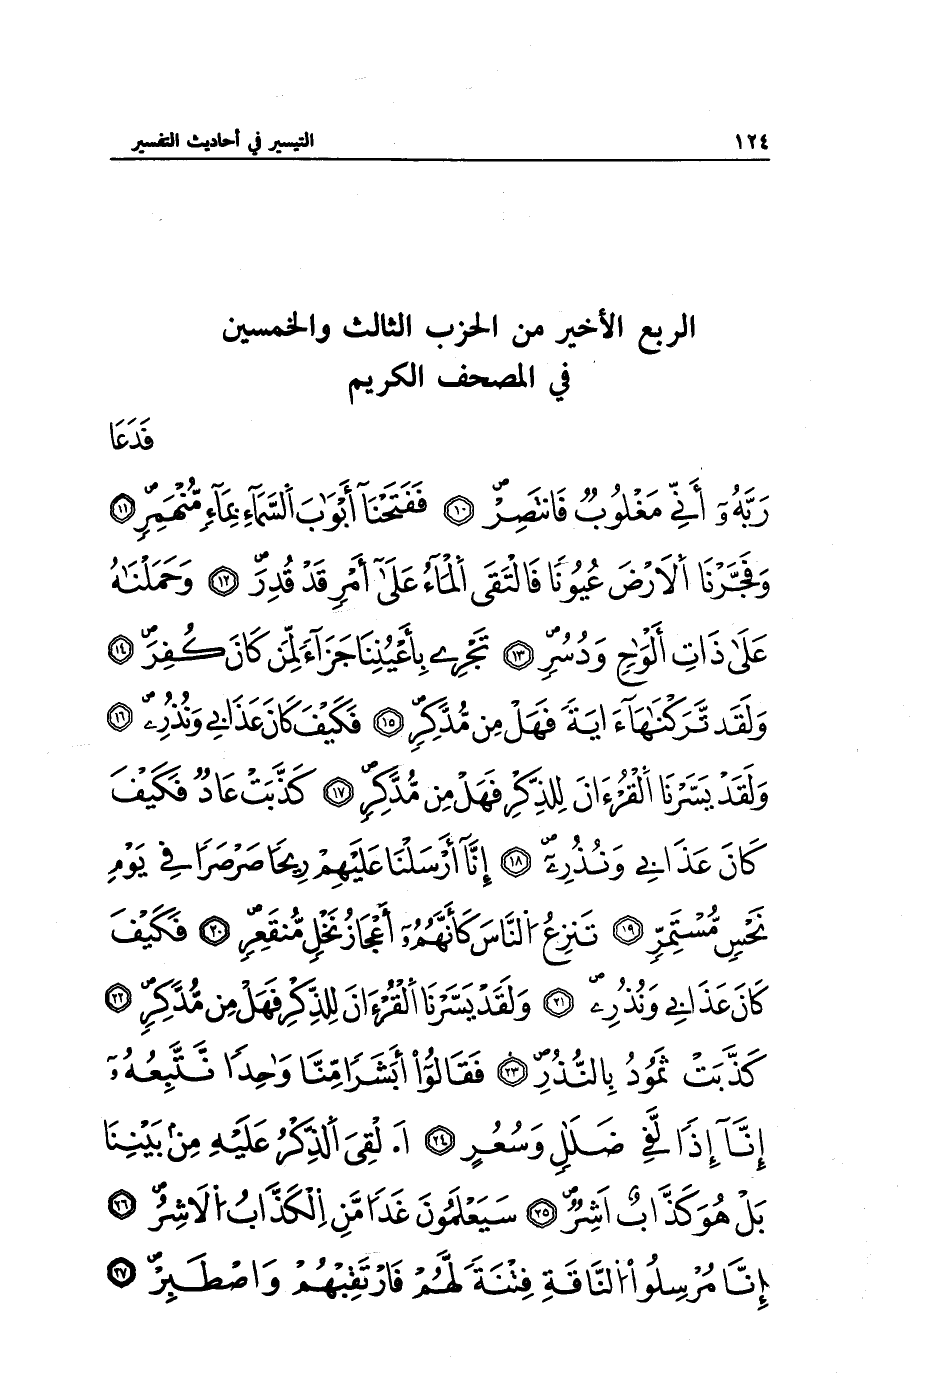 ١٢٤ التيسير في أحاديث التفسير
الربع الأخير من الحزب الثالث والخمسين
في المصحف الكريم
فَدَعَا
رَبَّهُۥٓ أَنِّے مَغْلُوبٌ فَانتَصِرْ ۝١٠ فَفَتَحْنَآ أَبْوَٰبَ اَلسَّمَآءِ بِمَآءٍ مُّنْهَمِرٍ ۝١١
وَفَجَّرْنَا اَلَارْضَ عُيُوناً فَالْتَقَى اَلْمَآءُ عَلَىٰٓ أَمْرٍ قَدْ قُدِرَ ۝١٢ وَحَمَلْنَٰهُ
عَلَىٰ ذَاتِ أَلْوَٰحٍ وَدُسُرٍ ۝١٣ تَجْرِے بِأَعْيُنِنَا جَزَآءً لِّمَن كَانَ كُفِرَ ۝١٤
وَلَقَد تَّرَكْنَٰهَآ ءَايَةً فَهَلْ مِن مُّدَّكِرٍ ۝١٥ فَكَيْفَ كَانَ عَذَابِے وَنُذُرِۦ ۝١٦
وَلَقَدْ يَسَّرْنَا اَلْقُرْءَانَ لِلذِّكْرِ فَهَلْ مِن مُّدَّكِرٍ ۝١٧ كَذَّبَتْ عَادٌ فَكَيْفَ
كَانَ عَذَابِے وَنُذُرِۦٓ ۝١٨ إِنَّآ أَرْسَلْنَا عَلَيْهِمْ رِيحاً صَرْصَراً فِے يَوْمِ
نَحْسٍ مُّسْتَمِرٍّ ۝١٩ تَنزِعُ اُلنَّاسَ كَأَنَّهُمُۥٓ أَعْجَازُ نَخْلٍ مُّنقَعِرٍ ۝٢٠ فَكَيْفَ
كَانَ عَذَابِے وَنُذُرِۦ ۝٢١ وَلَقَدْ يَسَّرْنَا اَلْقُرْءَانَ لِلذِّكْرِ فَهَلْ مِن مُّدَّكِرٍ ۝٢٢
كَذَّبَتْ ثَمُودُ بِالنُّذُرِ ۝٢٣ فَقَالُوٓاْ أَبَشَراً مِّنَّا وَٰحِداً نَّتَّبِعُهُۥٓ
إِنَّآ إِذاً لَّفِے ضَلَٰلٍ وَسُعُرٍ ۝٢٤ اَ.لْقِيَ اَلذِّكْرُ عَلَيْهِ مِنۢ بَيْنِنَا
بَلْ هُوَ كَذَّابٌ اَشِرٌ ۝٢٥ سَيَعْلَمُونَ غَداً مَّنِ اِلْكَذَّابُ اُلَاشِرُ ۝٢٦
إِنَّا مُرْسِلُواْ اُلنَّاقَةِ فِتْنَةً لَّهُمْ فَارْتَقِبْهُمْ وَاصْطَبِرْ ۝٢٧